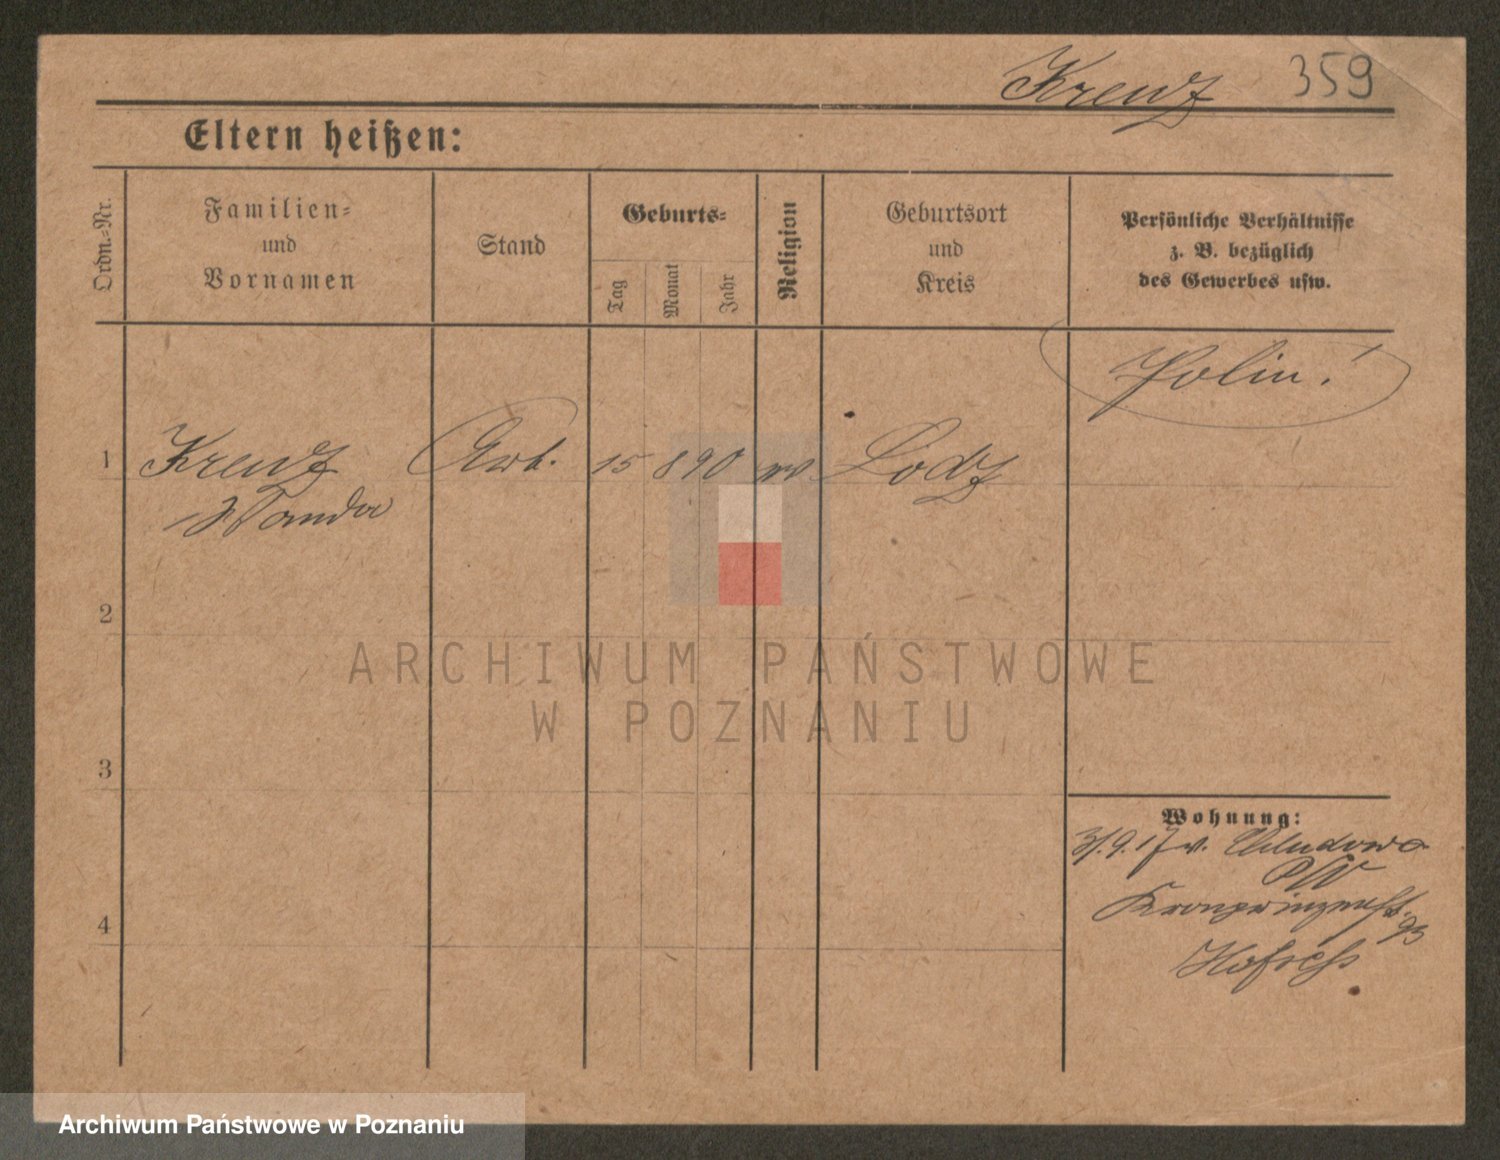 Krenz 359
Eltern heißen:
Ordn.-Nr.
Familien-
und
Vornamen
Stand
Geburts-
Tag
Monat
Jahr
Religion
Geburtsort
und
Kreis
Persönliche Verhältnisse
z. B. bezüglich
des Gewerbes usw.
Polin!
1 Krenz Arb. 15 8 90 Lodz
Wanda
2
ARCHIWUM PAŃSTWOWE
W POZNANIU
3
Wohnung:
3/.9.17 v.
Kronprinzenst.
93
4
Archiwum Państwowe w Poznaniu